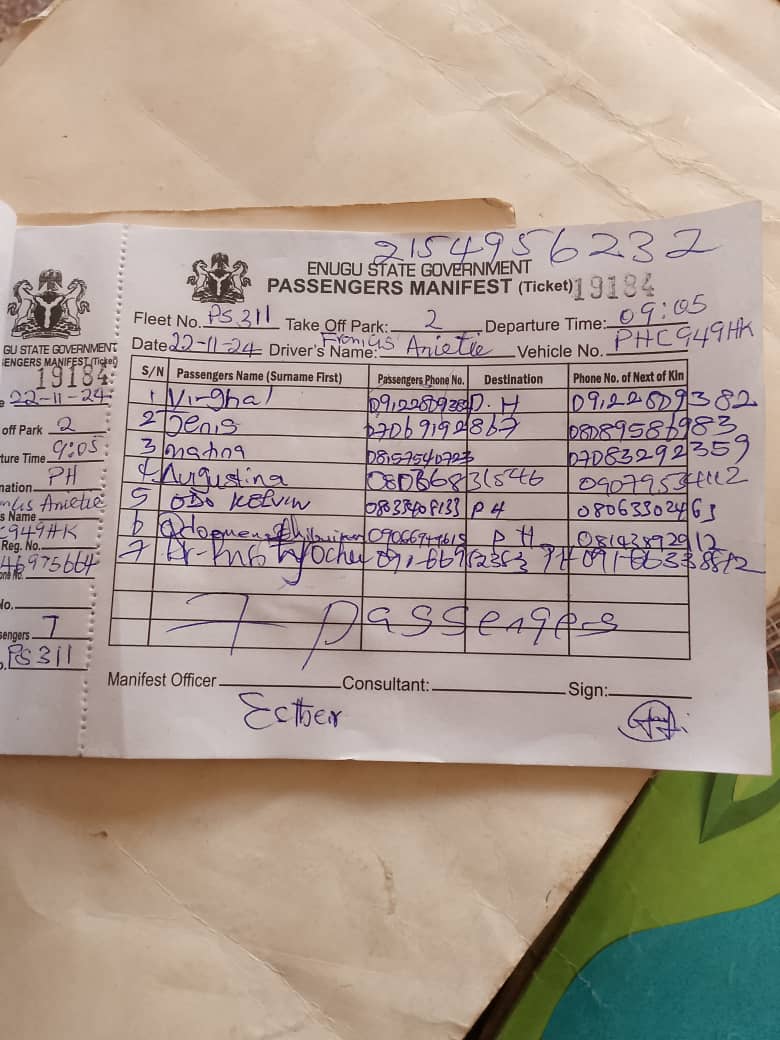 GU STATE GOVERNMENT
ENGERS MANIFEST (Ticket)
19184
22-11-24
off Park 2
ture Time 9:05
nation PH
Anietie
s Name
C949HK
Reg. No.
46975664
one No.
No.
sengers 7
PS311
2154956232
ENUGU STATE GOVERNMENT
PASSENGERS MANIFEST (Ticket) 19184
Fleet No. PS311 Take Off Park: 2 Departure Time: 09:05
Date 22-11-24 Driver's Name: Anietie Vehicle No. PHC949HK
S/N Passengers Name (Surname First) Passengers Phone No. Destination Phone No. of Next of Kin
1 09122809382 P.H 09122809382
2 Jenis 07069192867 08089586983
3 08157540723 07083292359
4 Augustina 08036831546 09079534112
5 ODO KELVIN 08033408133 PH 08063302463
6 PH 08143892912
7
7 passengers
Manifest Officer Consultant: Sign:
Esther